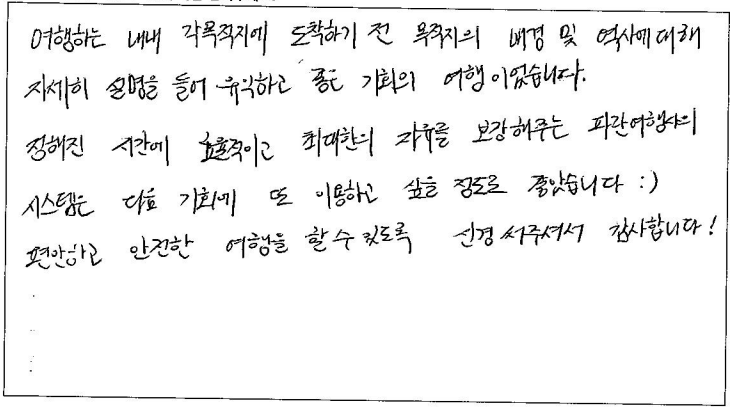 여행하는 내내 각목적지에 도착하기 전 목적지의 배경 및 역사에 대해
자세히 설명을 들어 유익하고 좋은 기회의 여행이었습니다.
정해진 시간에 효율적이고 최대한의 자유를 보강해주는 파란여행사의
시스템은 다음 기회에 또 이용하고 싶을 정도로 좋았습니다 :)
편안하고 안전한 여행을 할 수 있도록 신경 써주셔서 감사합니다!